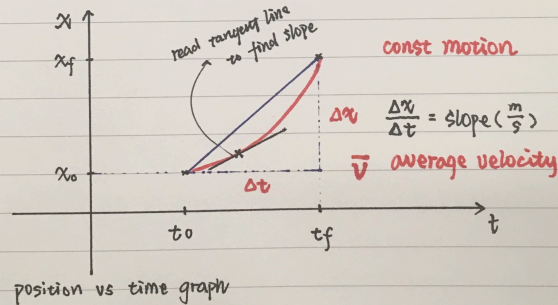 x
read tangent line
to find slope
const motion
xf
Δx
Δx/Δt = slope (m/s)
x₀
v̅ average velocity
Δt
t₀
tf
t
position vs time graph